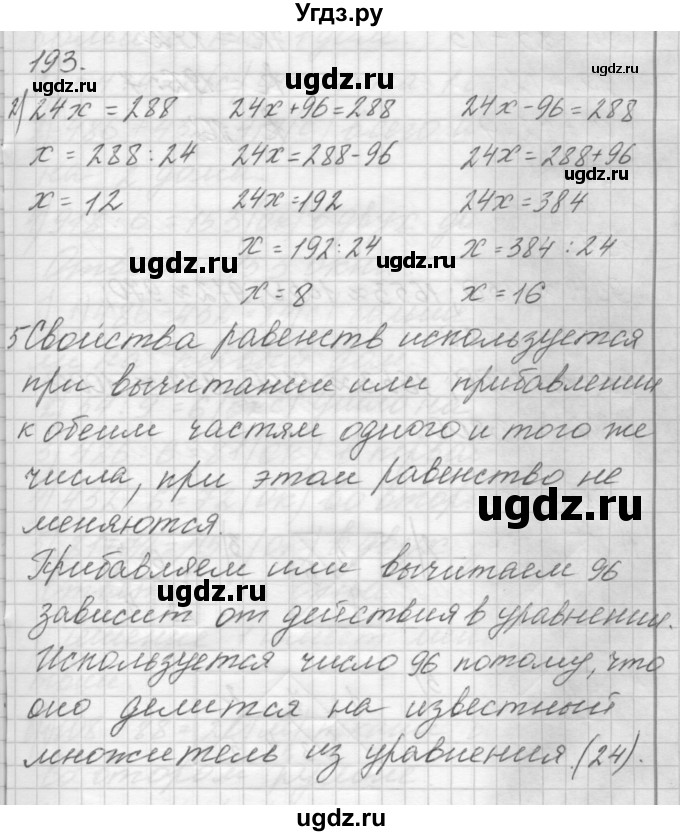 Угдз.ру
193.
2) 24x = 288   24x+96=288   24x-96=288
x = 288:24   24x=288-96   24x=288+96
x = 12   24x=192   24x=384
x=192:24   x=384:24
x=8   x=16
5 Свойства равенств используется
при вычитании или прибавлении
к обеим частям одного и того же
числа, при этом равенство не
меняются.
Прибавляем или вычитаем 96
зависит от действия в уравнении.
Используется число 96 потому, что
оно делится на известный
множитель из уравнения (24).
ugdz.ru
ugdz.ru
ugdz.ru
ugdz.ru
ugdz.ru
ugdz.ru
ugdz.ru
ugdz.ru
ugdz.ru